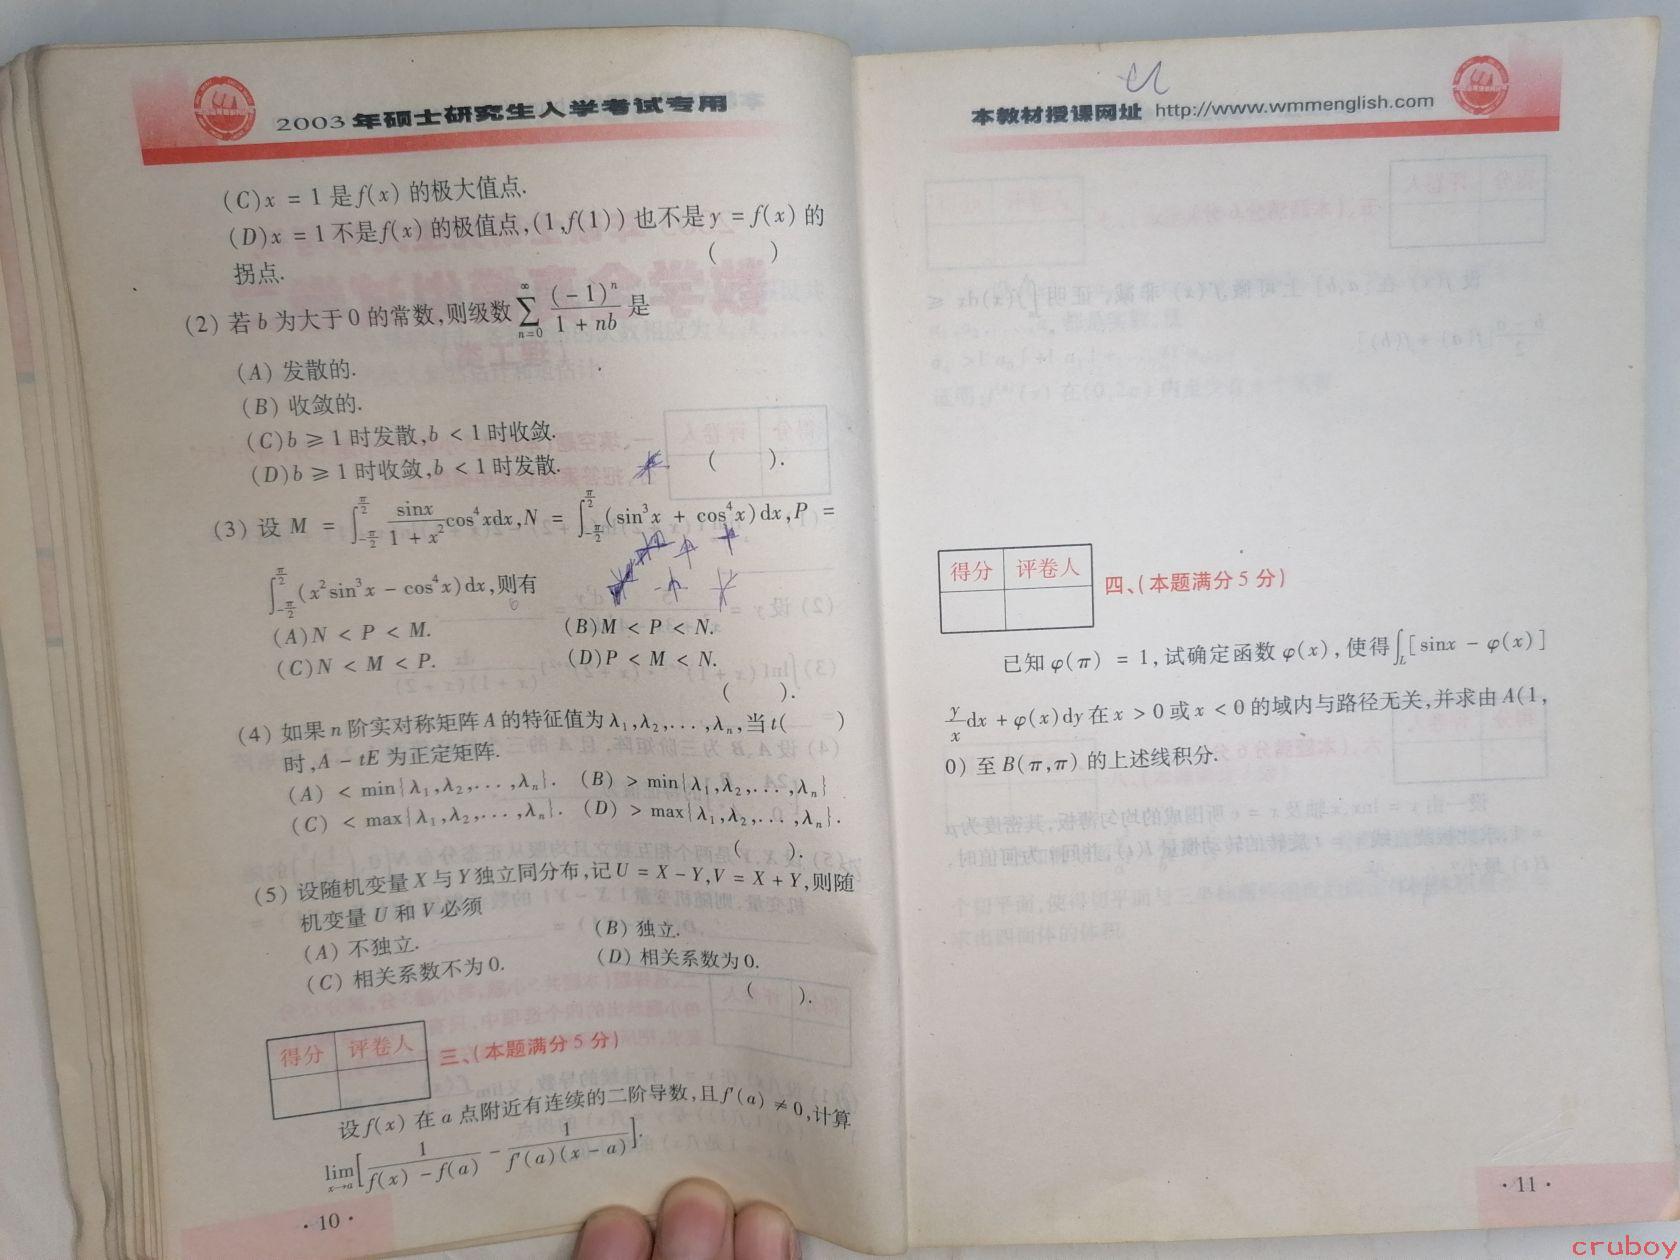 2003年硕士研究生入学考试专用
(C)x = 1 是 f(x) 的极大值点.
(D)x = 1 不是f(x) 的极值点,(1,f(1)) 也不是 y = f(x) 的
拐点. (    )
(2) 若 b 为大于 0 的常数,则级数 ∑_{n=0}^{∞} (-1)^n/(1 + nb) 是
(A) 发散的.
(B) 收敛的.
(C)b ≥ 1 时发散,b < 1 时收敛.
(D)b ≥ 1 时收敛,b < 1 时发散. (    ).
(3) 设 M = ∫_{-π/2}^{π/2} sinx/(1 + x²) cos⁴xdx,N = ∫_{-π/2}^{π/2}(sin³x + cos⁴x)dx,P =
∫_{-π/2}^{π/2}(x²sin³x - cos⁴x)dx,则有
(A)N < P < M. (B)M < P < N.
(C)N < M < P. (D)P < M < N.
(    ).
(4) 如果 n 阶实对称矩阵 A 的特征值为 λ₁,λ₂,...,λₙ,当 t(    )
时,A - tE 为正定矩阵.
(A) < min{λ₁,λ₂,...,λₙ}. (B) > min{λ₁,λ₂,...,λₙ}
(C) < max{λ₁,λ₂,...,λₙ}. (D) > max{λ₁,λ₂,...,λₙ}.
(    ).
(5) 设随机变量 X 与 Y 独立同分布,记 U = X - Y,V = X + Y,则随
机变量 U 和 V 必须
(A) 不独立. (B) 独立.
(C) 相关系数不为 0. (D) 相关系数为 0.
(    ).
得分 评卷人 三、(本题满分 5 分)
设 f(x) 在 a 点附近有连续的二阶导数,且 f'(a) ≠ 0,计算
lim_{x→a}[1/(f(x) - f(a)) - 1/(f'(a)(x - a))].
· 10 ·
本教材授课网址 http://www.wmmenglish.com
得分 评卷人 四、(本题满分 5 分)
已知 φ(π) = 1,试确定函数 φ(x),使得∫_L[sinx - φ(x)]
y/x dx + φ(x)dy 在 x > 0 或 x < 0 的域内与路径无关,并求由 A(1,
0) 至 B(π,π) 的上述线积分.
· 11 ·
cruboy